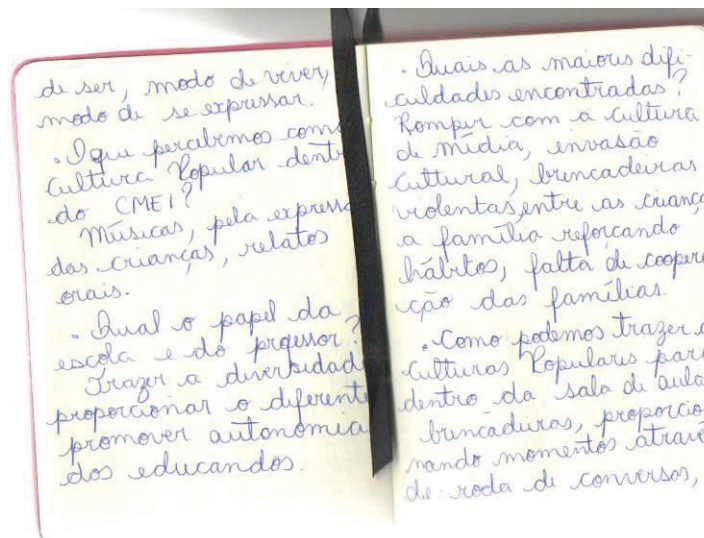 de ser, modo de viver,
modo de se expressar.
. O que percebemos como
Cultura Popular dentr
do CMEI?
Músicas, pela express
das crianças, relatos
orais.
. Qual o papel da
escola e do professor?
Trazer a diversidad
proporcionar o diferent
promover autonomia
dos educandos.
. Quais as maiores difi-
culdades encontradas?
Romper com a cultura
de mídia, invasão
cultural, brincadeiras
violentas, entre as crianç
a família reforçando
hábitos, falta de cooper
ção das famílias.
. Como podemos trazer a
culturas Populares par
dentro da sala de aula
brincadeiras, proporcio
nando momentos atravé
de roda de conversas,